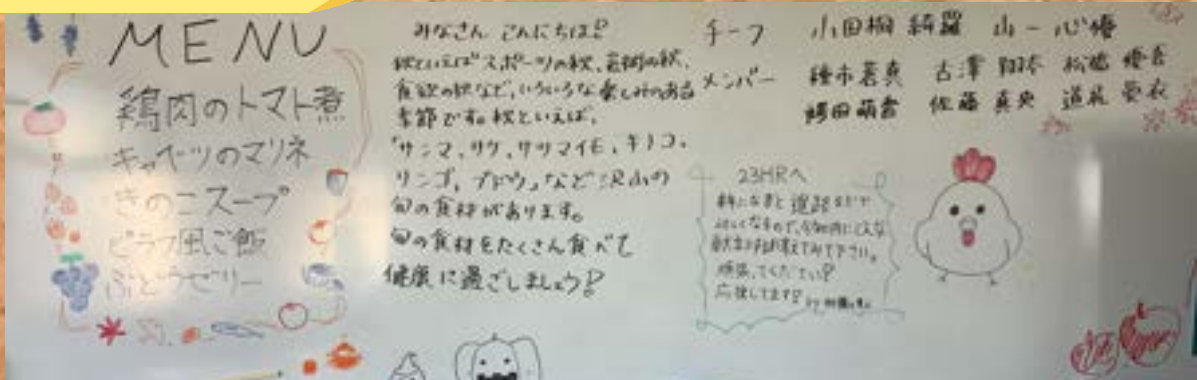 MENU
鶏肉のトマト煮
キャベツのマリネ
きのこスープ
ピラフ風ご飯
ぶどうゼリー
みなさん こんにちは!
秋といえばスポーツの秋、芸術の秋、
食欲の秋など、いろいろな楽しみのある
季節です。秋といえば、
サンマ、サケ、サツマイモ、キノコ、
リンゴ、ブドウ、など沢山の
旬の食材があります。
旬の食材をたくさん食べて
健康に過ごしましょう!
チーフ 小田桐 綺羅 山一心優
メンバー 種市 古澤 松橋
萌 佐藤 真央 道尻 愛衣
23HRへ
秋になると進路などで
頑張ってください!
応援してます! by